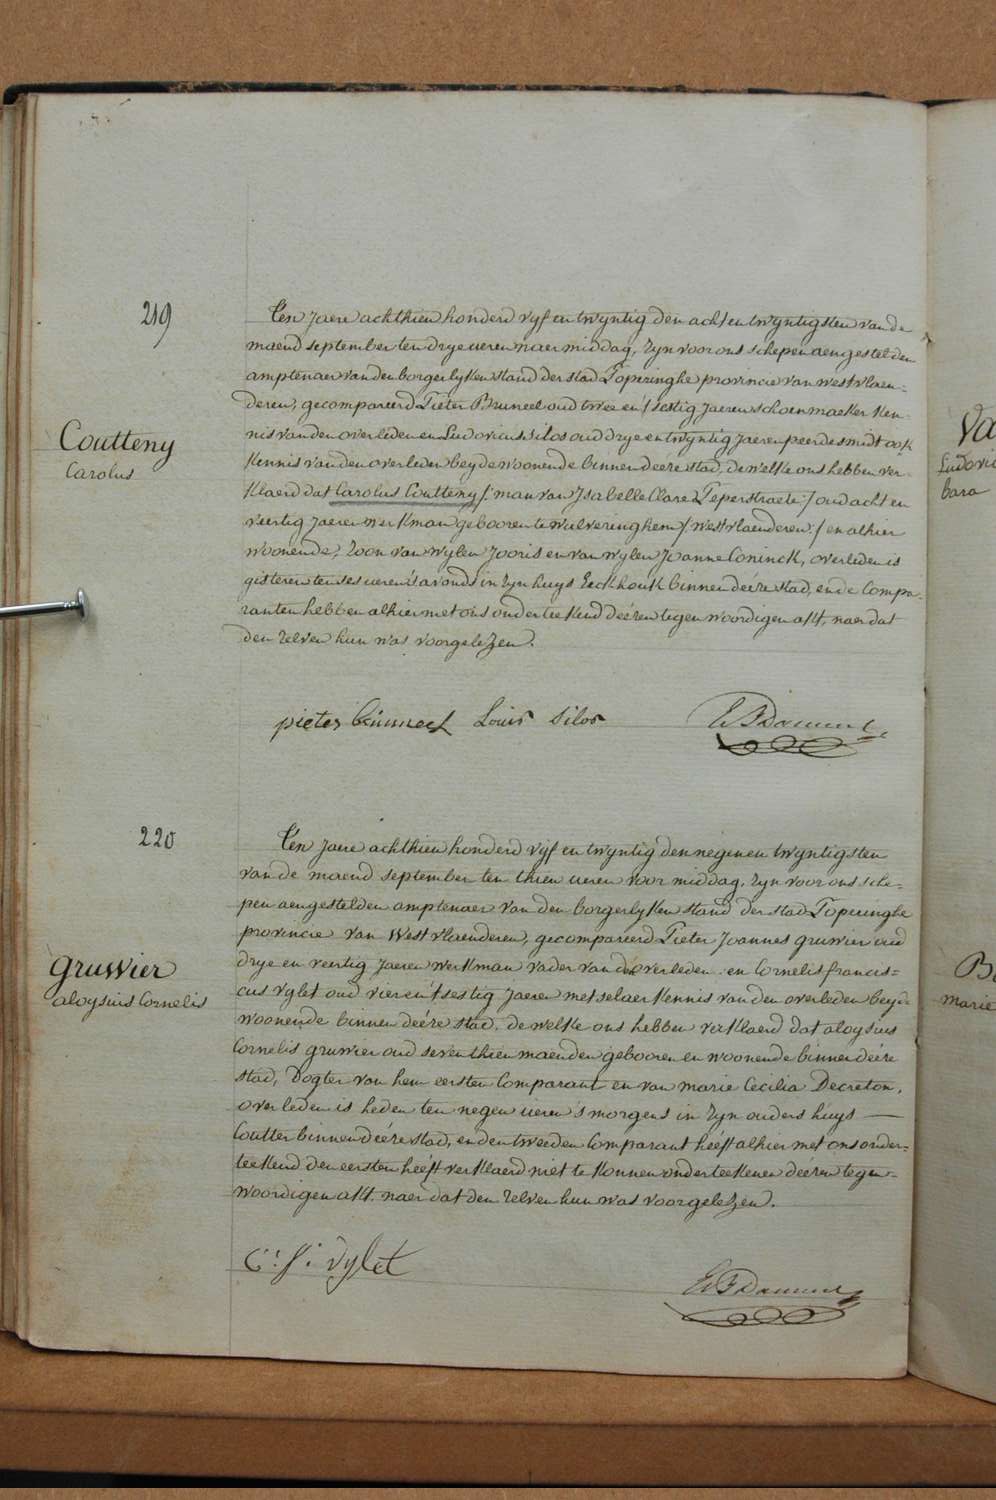 219
Coutteny
Carolus
Ten jaere achthien honderd vyf en twyntig den acht en twyntigsten van de
maend september ten drye ueren naer middag, zyn voor ons schepen aengestelden
amptenaer van den borgerlyken stand der stad Poperinghe provincie van westvlaen-
deren, gecompareerd Pieter Bruneel oud twee en t'sestig jaeren schoenmaeker ken-
nis van den overleden en Ludovicus Silos oud drye en twyntig jaeren peerdesmidt ook
kennis van den overleden beyde woonende binnen deéze stad, dewelke ons hebben ver-
klaerd dat Carolus Coutteny /: man van Isabelle Clare Peperstraete :/ oud acht en
veertig jaeren werkman gebooren te wulveringhem /: westvlaenderen :/ en alhier
woonende, zoon van wylen Jooris en van wylen Joanne Coninck, overleden is
gisteren ten ses ueren s'avonds in zyn huys Eeckhouk binnen deéze stad, en de Compa-
ranten hebben alhier met ons onderteekend deézen tegenwoordigen akt, naer dat
den zelven hun was voorgelezen.
pieter Bruneel Louis Silos
220
gruwier
aloysius Cornelis
Ten jaere achthien honderd vyf en twyntig den negen en twyntigsten
van de maend september ten thien ueren voor middag, zyn voor ons sche-
pen aengestelden amptenaer van den borgerlyken stand der stad Poperinghe
provincie van Westvlaenderen, gecompareerd Pieter Joannes gruwier oud
drye en veertig jaeren werkman vader van den overleden en Cornelis francis-
cus vylet oud vier en t'sestig jaeren metselaer kennis van den overleden beyde
woonende binnen deéze stad, dewelke ons hebben verklaerd dat aloysius
Cornelis gruwier oud seventhien maenden gebooren en woonende binnen deéze
stad, Dogter van hem eersten Comparant en van marie Cecilia Decreton,
overleden is heden ten negen ueren s'morgens in zyn ouders huys —
Coutter binnen deéze stad, en den tweeden Comparant heeft alhier met ons onder-
teekend den eersten heéft verklaerd niet te konnen onderteekenen deézen tegen-
woordigen akt. naer dat den zelven hun was voorgelezen.
C: f: vylet
Va
Ludovic
bara
Be
marie